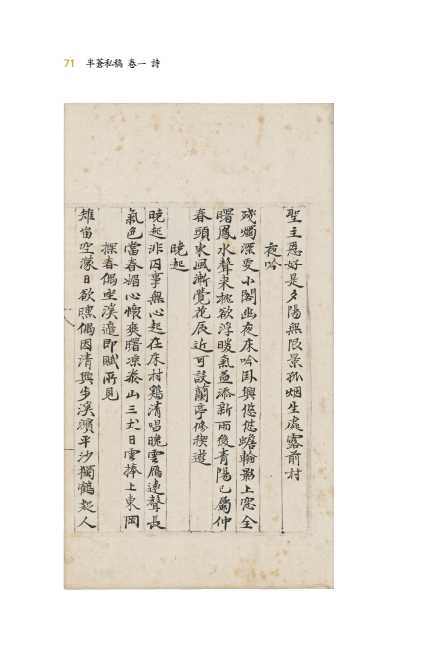 71 半蒼私稿 卷一 詩
聖主恩好是夕陽無限景孤烟生處露前村
夜吟
殘燭深更小閣幽夜床吟臥興悠悠蟾輪影上窓全
曙鳳水聲來枕欲浮暖氣益添新雨後青陽已屬仲
春頭東風漸覺花辰近可設蘭亭修禊遊
曉起
曉起非因事無心起在床村鷄清唱曉雲鴈遠聲長
氣色當春媚心懷爽曙凉叢山三丈日雲捧上東岡
探春偶坐溪邊即賦所見
雉笛空濛日欲曛偶因清興步溪濱平沙獨鶴起人